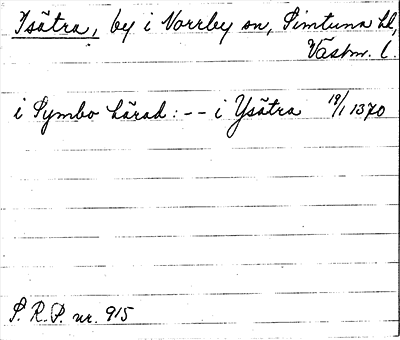 Isätra, by i Norrby sn, Simtuna hd,
Västm. l.
i Symbo härad: -- i Ysätra 19/1 1370
S. R. P. nr. 915